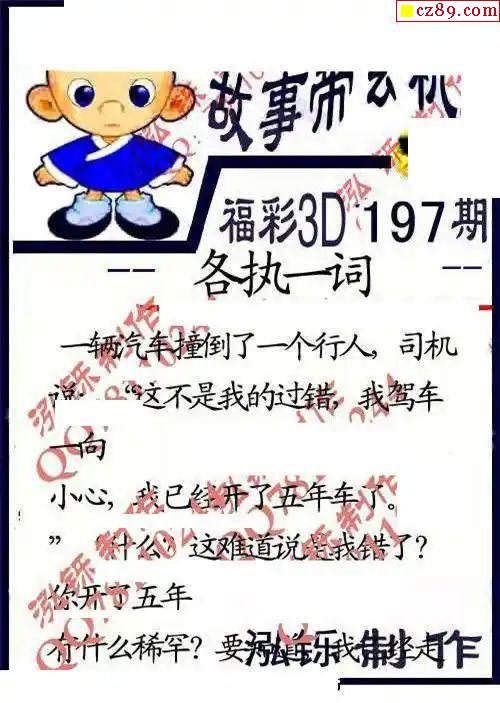 cz89.com
故事带玄机
福彩3D 197期
各执一词
一辆汽车撞倒了一个行人，司机
说：“这不是我的过错，我驾车
一向
小心，我已经开了五年车了。
”“什么？这难道说是我错了？
你开了五年
有什么稀罕？要 我 走
泓铄 制作